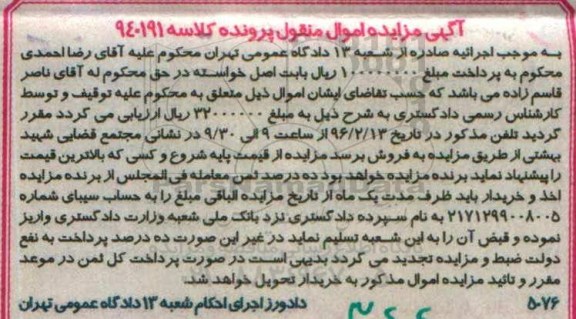 آگهی مزایده اموال منقول پرونده کلاسه ۹۴۰۱۹۱
به موجب اجرائیه صادره از شعبه ۱۳ دادگاه عمومی تهران محکوم علیه آقای رضا احمدی
محکوم به پرداخت مبلغ ریال بابت اصل خواسته در حق محکوم له آقای ناصر
قاسم زاده می باشد که حسب تقاضای ایشان اموال ذیل متعلق به محکوم علیه توقیف و توسط
کارشناس رسمی دادگستری به شرح ذیل به مبلغ ۳۲۰۰۰۰۰۰ ریال ارزیابی می گردد مقرر
گردید تلفن مذکور در تاریخ ۹۶/۲/۱۳ از ساعت ۹ الی ۹/۳۰ در نشانی مجتمع قضایی شهید
بهشتی از طریق مزایده به فروش برسد مزایده از قیمت پایه شروع و کسی که بالاترین قیمت
را پیشنهاد نماید برنده مزایده خواهد بود ده درصد ثمن معامله فی المجلس از برنده مزایده
اخذ و خریدار باید ظرف مدت یک ماه از تاریخ مزایده الباقی مبلغ را به حساب سیبای شماره
۲۱۷۱۲۹۹۰۰۸۰۰۵ به نام سپرده دادگستری نزد بانک ملی شعبه وزارت دادگستری واریز
نموده و قبض آن را به این شعبه تسلیم نماید در غیر این صورت ده درصد پرداخت به نفع
دولت ضبط و مزایده تجدید می گردد بدیهی است در صورت پرداخت کل ثمن در موعد
مقرر و تائید مزایده اموال مذکور به خریدار تحویل خواهد شد.
۵۰۷۶ دادورز اجرای احکام شعبه ۱۳ دادگاه عمومی تهران